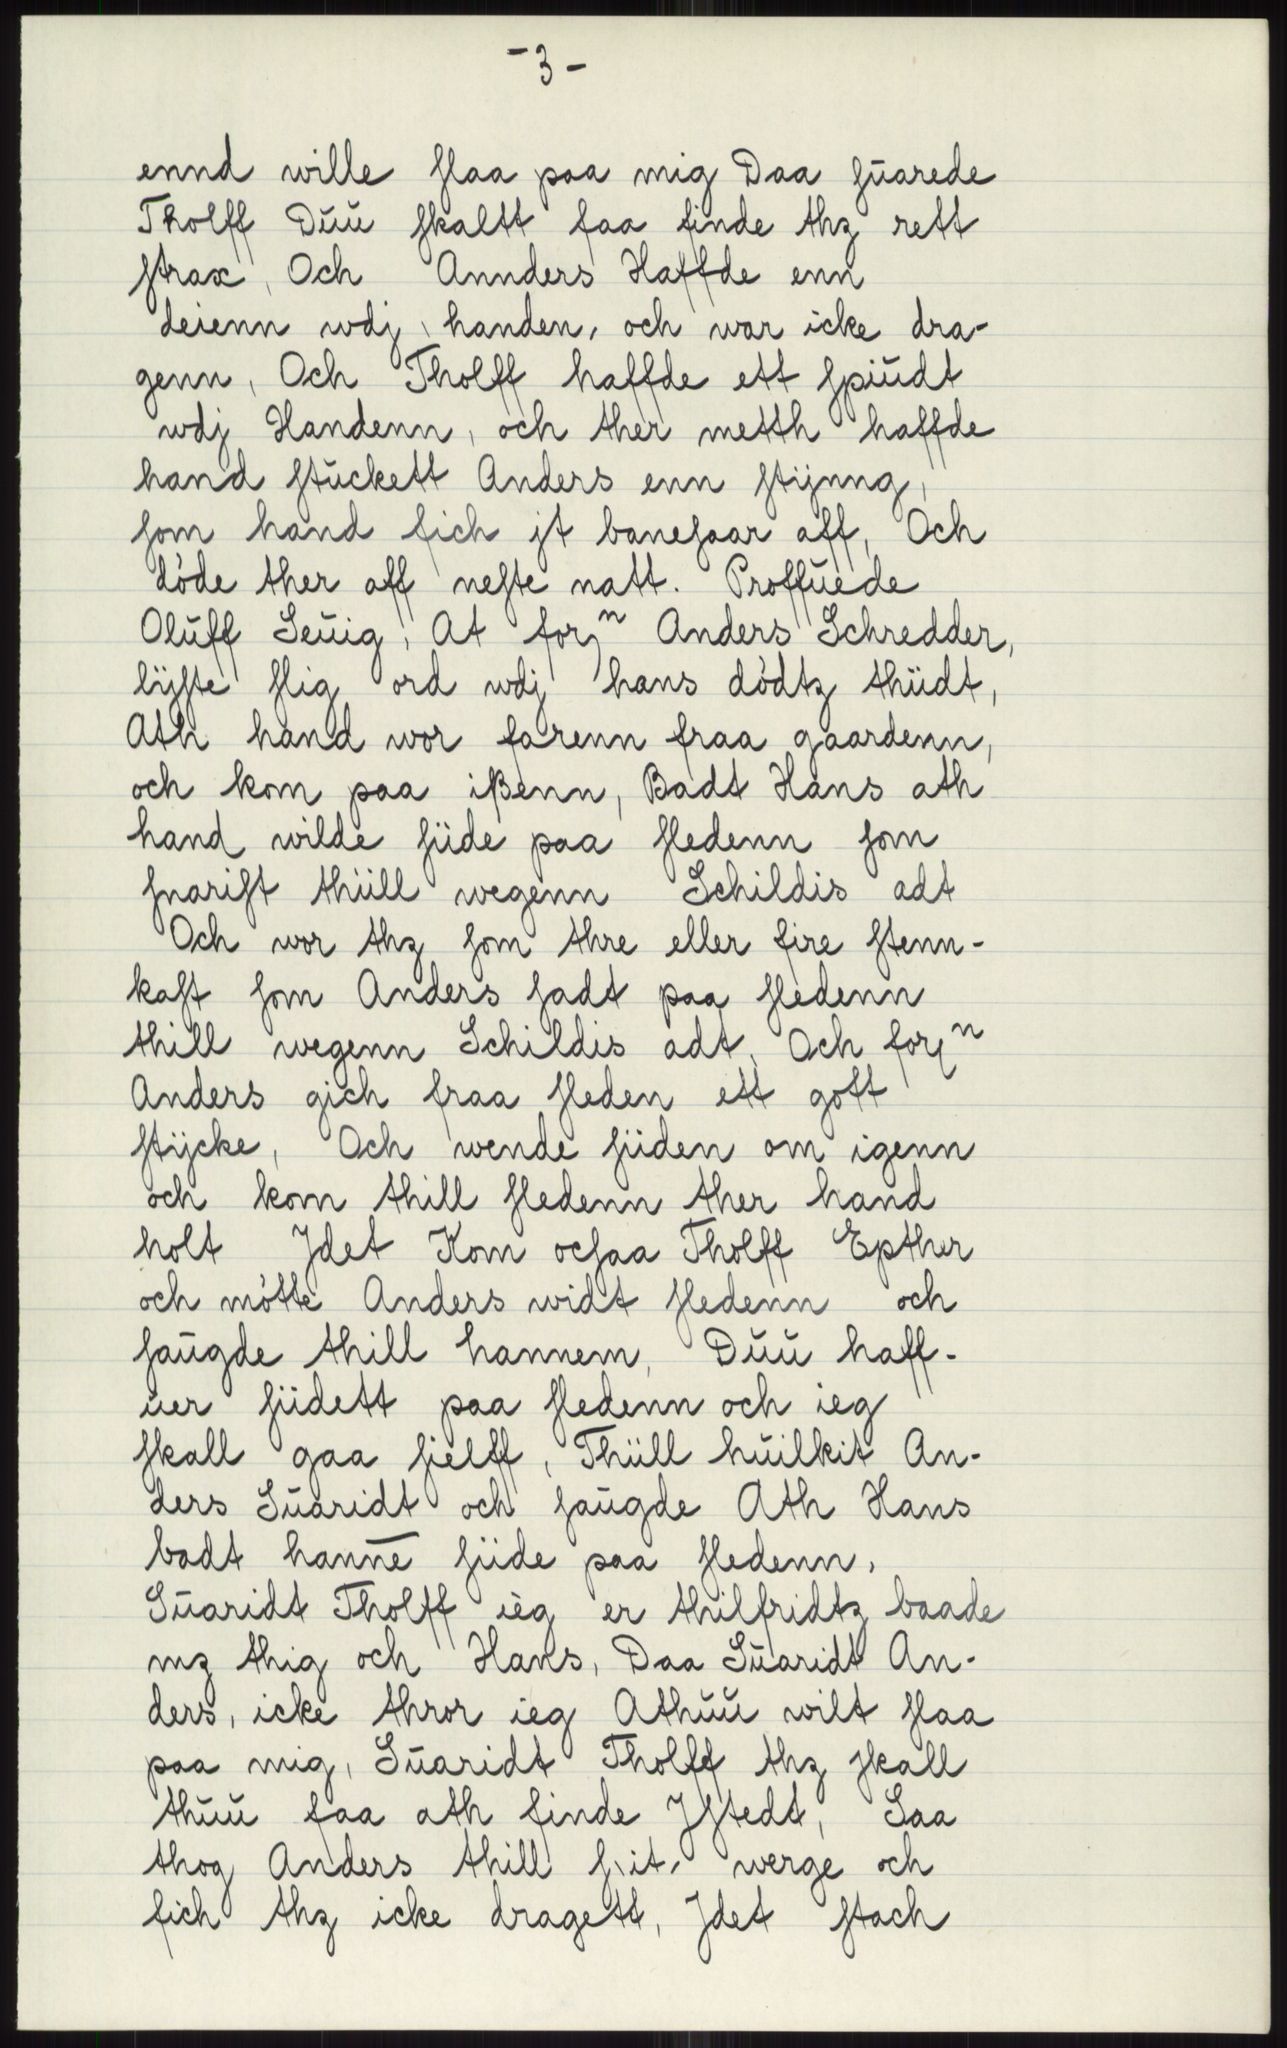 - 3 -
ennd wille slaa paa mig Daa suarede
Tholff Duu skaltt faa finde thz rett
strax, Och Annders Haffde enn
deienn wdj handen, och war icke dra-
genn, Och Tholff haffde ett spiudt
wdj Handenn, och ther metth haffde
hand stuckett Anders enn stijnng,
som hand fich jt banesaar aff, Och
döde ther aff neste natt. Proffuede
Oluff Seuig, At forn Anders Schredder,
lijste slig ord wdj hans dödtz thiidt,
Ath hand wor farenn fraa gaardenn,
och kom paa ißenn, Badt Hans ath
hand wilde siide paa sledenn som
snarist thiill wegenn Schildis adt
Och wor thz som thre eller fire stenn-
kast som Anders sadt paa sledenn
thill wegenn Schildis adt, Och forn
Anders gich fraa sleden ett gott
stijcke, Och wende siiden om igenn
och kom thill sledenn ther hand
holt Jdet Kom ochsaa Tholff Epther
och mötte Anders widt sledenn och
saugde thill hannem, Duu haff-
uer siidett paa sledenn och ieg
skall gaa sielff, Thiill huilkit An-
ders Suaridt och saugde Ath Hans
badt hannē siide paa sledenn,
Suaridt Tholff ieg er thilfridtz baade
mz thig och Hans, Daa Suaridt An-
ders, icke thror ieg Athuu wilt slaa
paa mig, Suaridt Tholff thz skall
thuu faa ath finde Jstedt, Saa
thog Anders thill sit werge och
fich thz icke dragett, Jdet stach